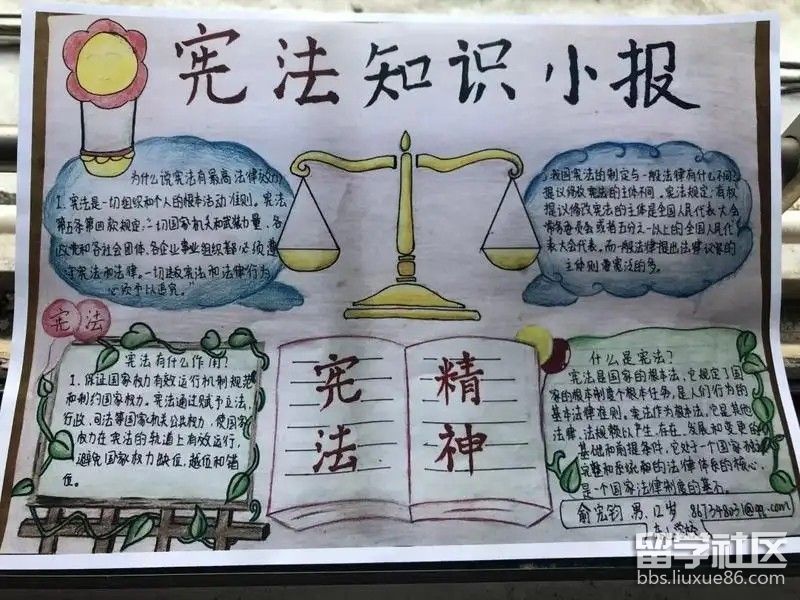 宪法知识小报
为什么说宪法有最高法律效力
1、宪法是一切组织和个人的根本活动准则。宪法
第五条第四款规定:"一切国家机关和武装力量、各
政党和各社会团体、各企业事业组织都必须遵
守宪法和法律。一切违反宪法和法律行为
必须予以追究。"
我国宪法的制定与一般法律有什么不同?
提议修改宪法的主体不同。宪法规定:有权
提议修改宪法的主体是全国人民代表大会
常务委员会或者五分之一以上的全国人民代
表大会代表。而一般法律提出法律议案的
主体则要宽泛的多。
宪法
宪法有什么作用?
1、保证国家权力有效运行机制规范
和制约国家权力。宪法通过赋予立法,
行政,司法等国家机关公共权力,使国家
权力在宪法的轨道上有效运行,
避免国家权力缺位,越位和错
位。
宪法
精神
什么是宪法?
宪法是国家的根本法,它规定了国
家的根本制度和根本任务。是人们行为的
基本法律准则。宪法作为根本法,它是其他
法律、法规赖以产生、存在、发展和变更的
基础和前提条件,它处于一个国家独立
完整和系统的法律体系的核心,
是一个国家法律制度的基石。
俞宏钧 男 12岁 867348031@qq.com
留学社区
bbs.liuxue86.com